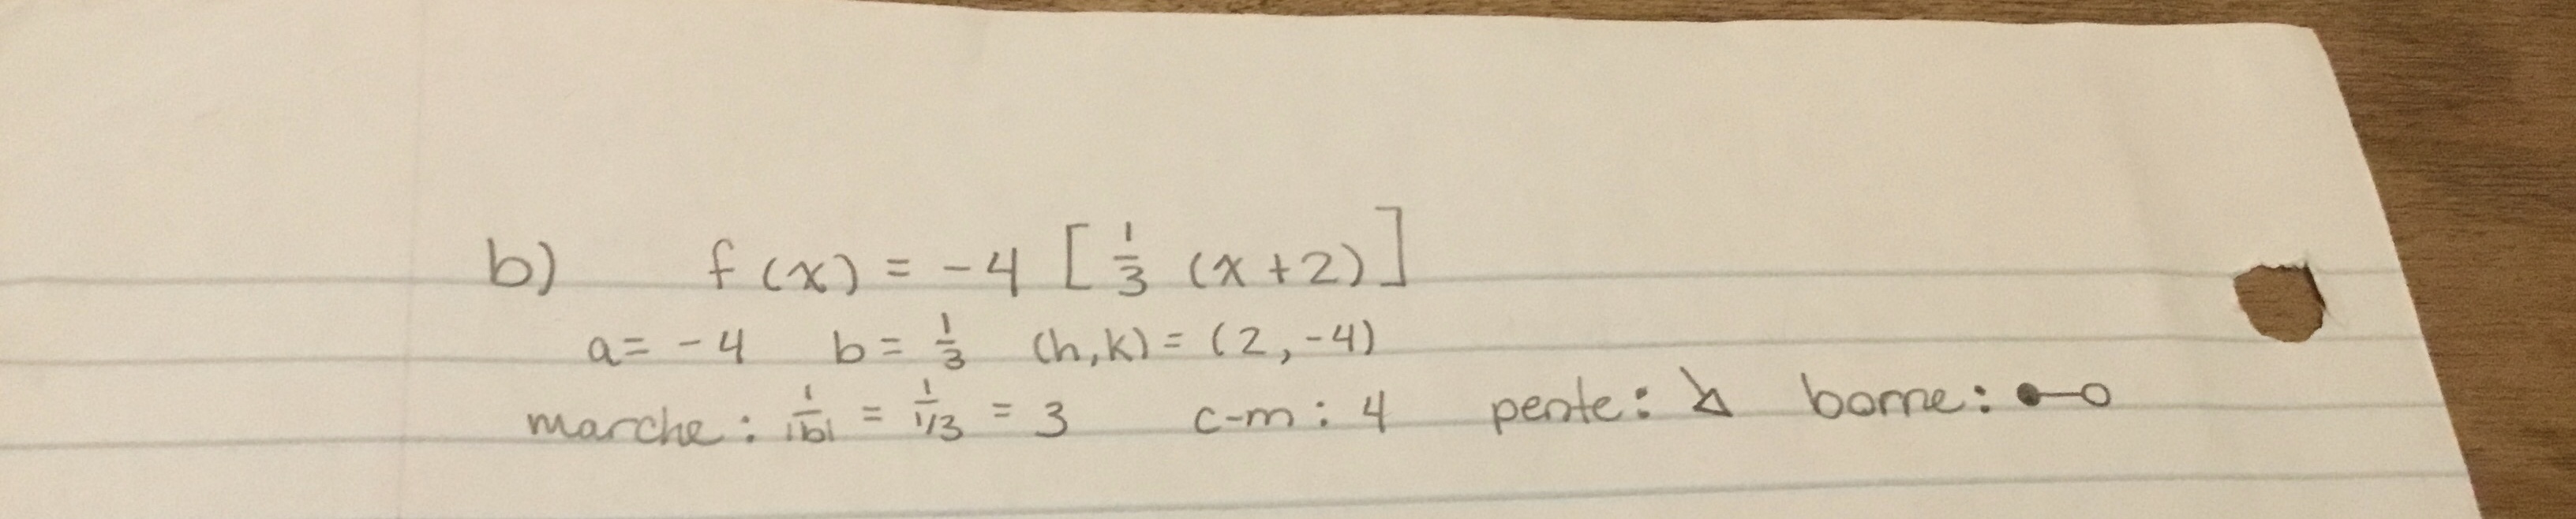 b) f(x) = -4 [ 1/3 (x+2) ]
a = -4 b = 1/3 (h,k) = (2,-4)
marche : 1/|b| = 1/1/3 = 3 c-m : 4 pente : ↘ borne : ●—○